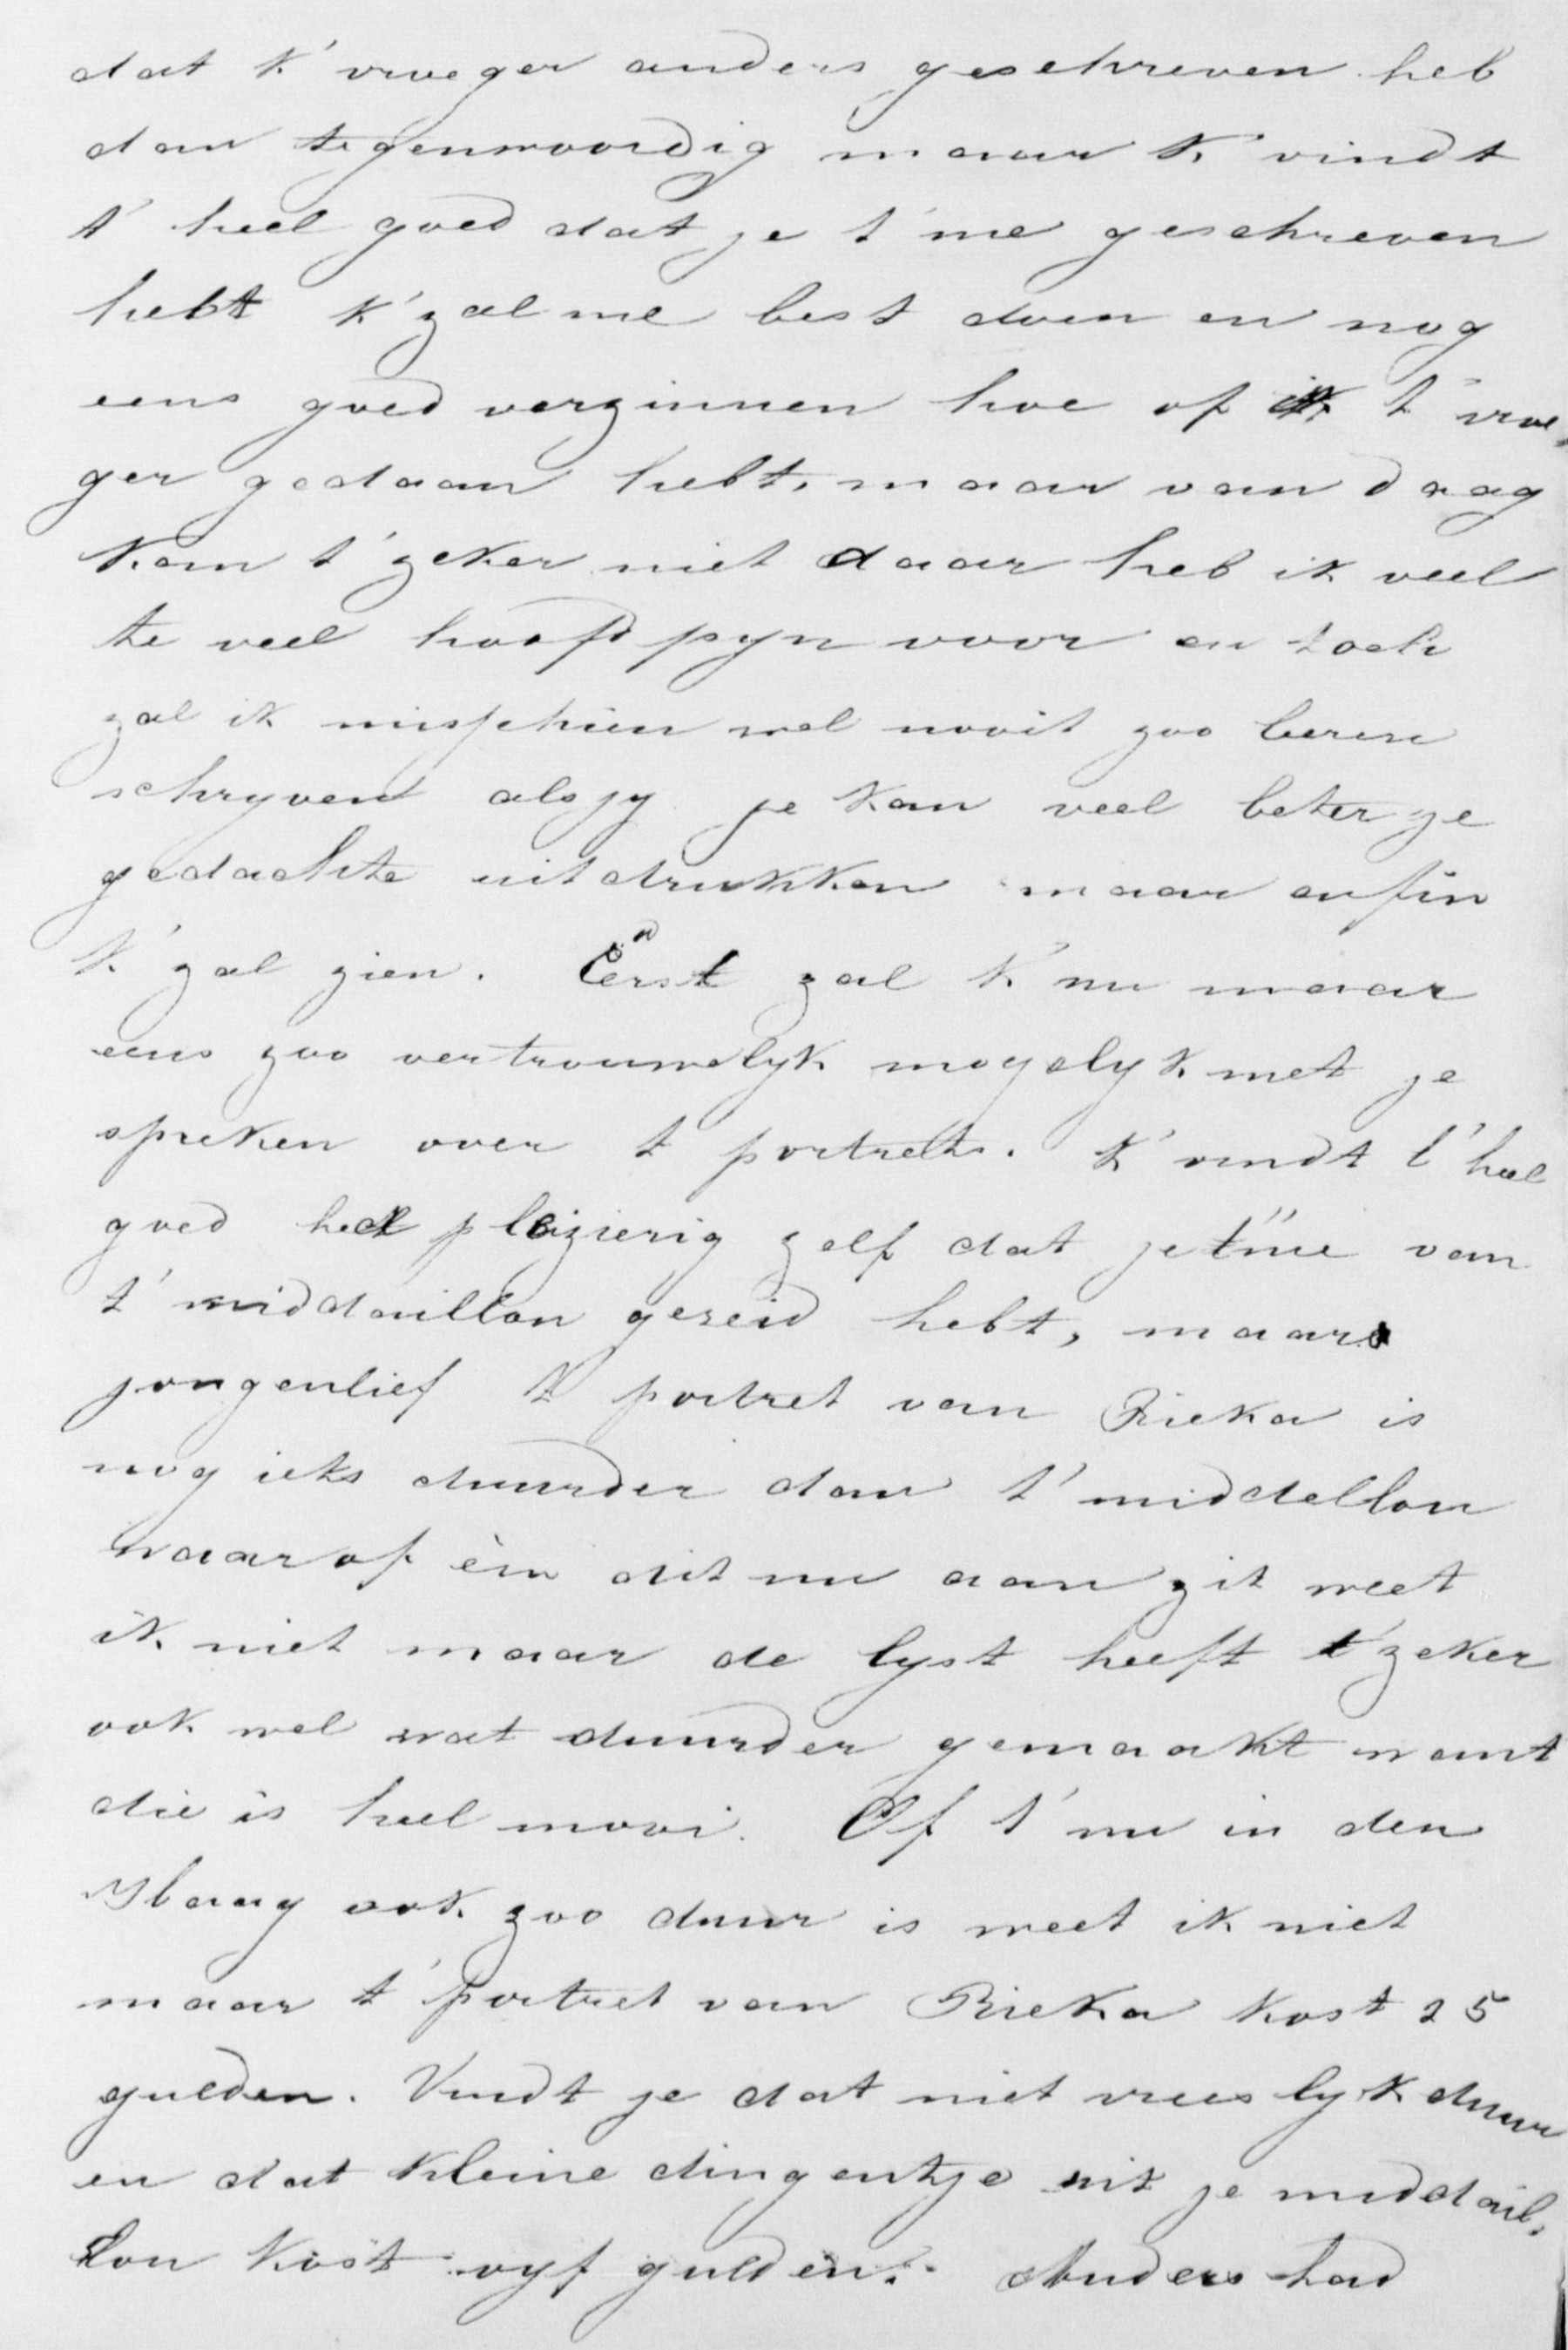 dat k' vroeger anders geschreven heb
dan tegenwoordig maar k' vindt
t' heel goed dat je t' me geschreven
hebt k' zal me best doen en nog
eens goed verzinnen hoe of ik t' vroe„
ger gedaan hebt, maar van daag
kan t' zeker niet daar heb ik veel
te veel hoofdpyn voor en toch
zal ik misschien wel nooit zoo leeren
schryven als jy je kan veel beter je
gedachte uitdrukken maar enfin
k' zal zien. Eerst zal k' nu maar
eens zoo vertrouwelyk mogelyk met je
spreken over t portret. k' vindt t' heel
goed heel pleizierig zelf dat je t' me van
t' middaillon gezeid hebt, maar
jongenlief t portret van Rieka is
nog iets duurder dan t' middellon
waar of em dit nu aan zit weet
ik niet maar de lyst heeft t' zeker
ook wel wat duurder gemaakt want
die is heel mooi. Of t' nu in den
Haag ook zoo duur is weet ik niet
maar t' portret van Rieka kost 25
gulden. Vindt je dat niet vreeslyk duur
en dat kleine dingentje uit je middail„
lon kost vyf gulden. Anders had